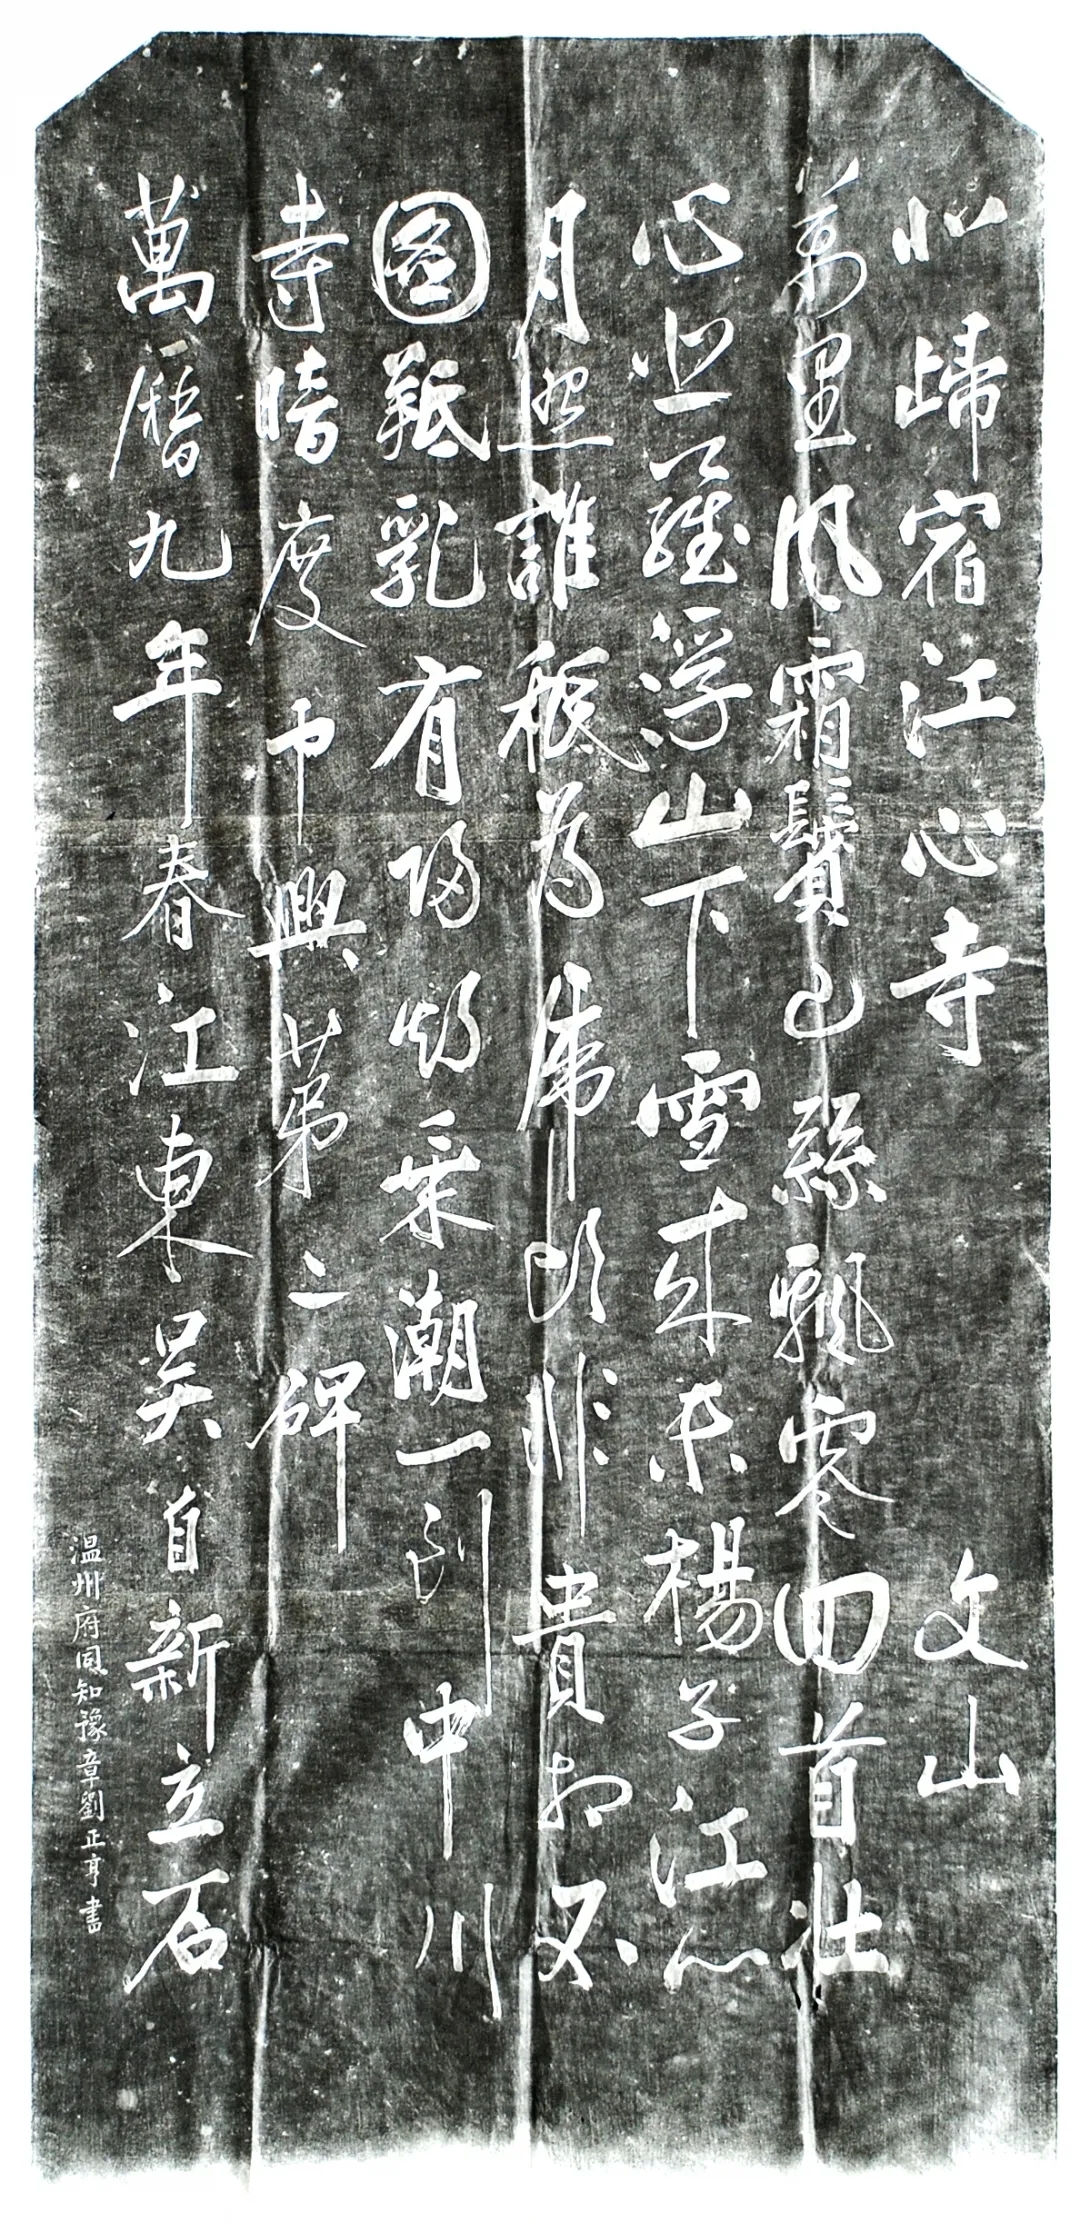 北歸宿江心寺 文山
萬里風霜鬢已絲飄零回首壯
心悲羅浮山下雪来未楊子江心
月照誰秖為虎頭非貴相不
圖羝乳有歸期乘潮一到中川
寺暗度中興第二碑
萬曆九年春江東吳自新立石
温州府同知豫章劉正亨書